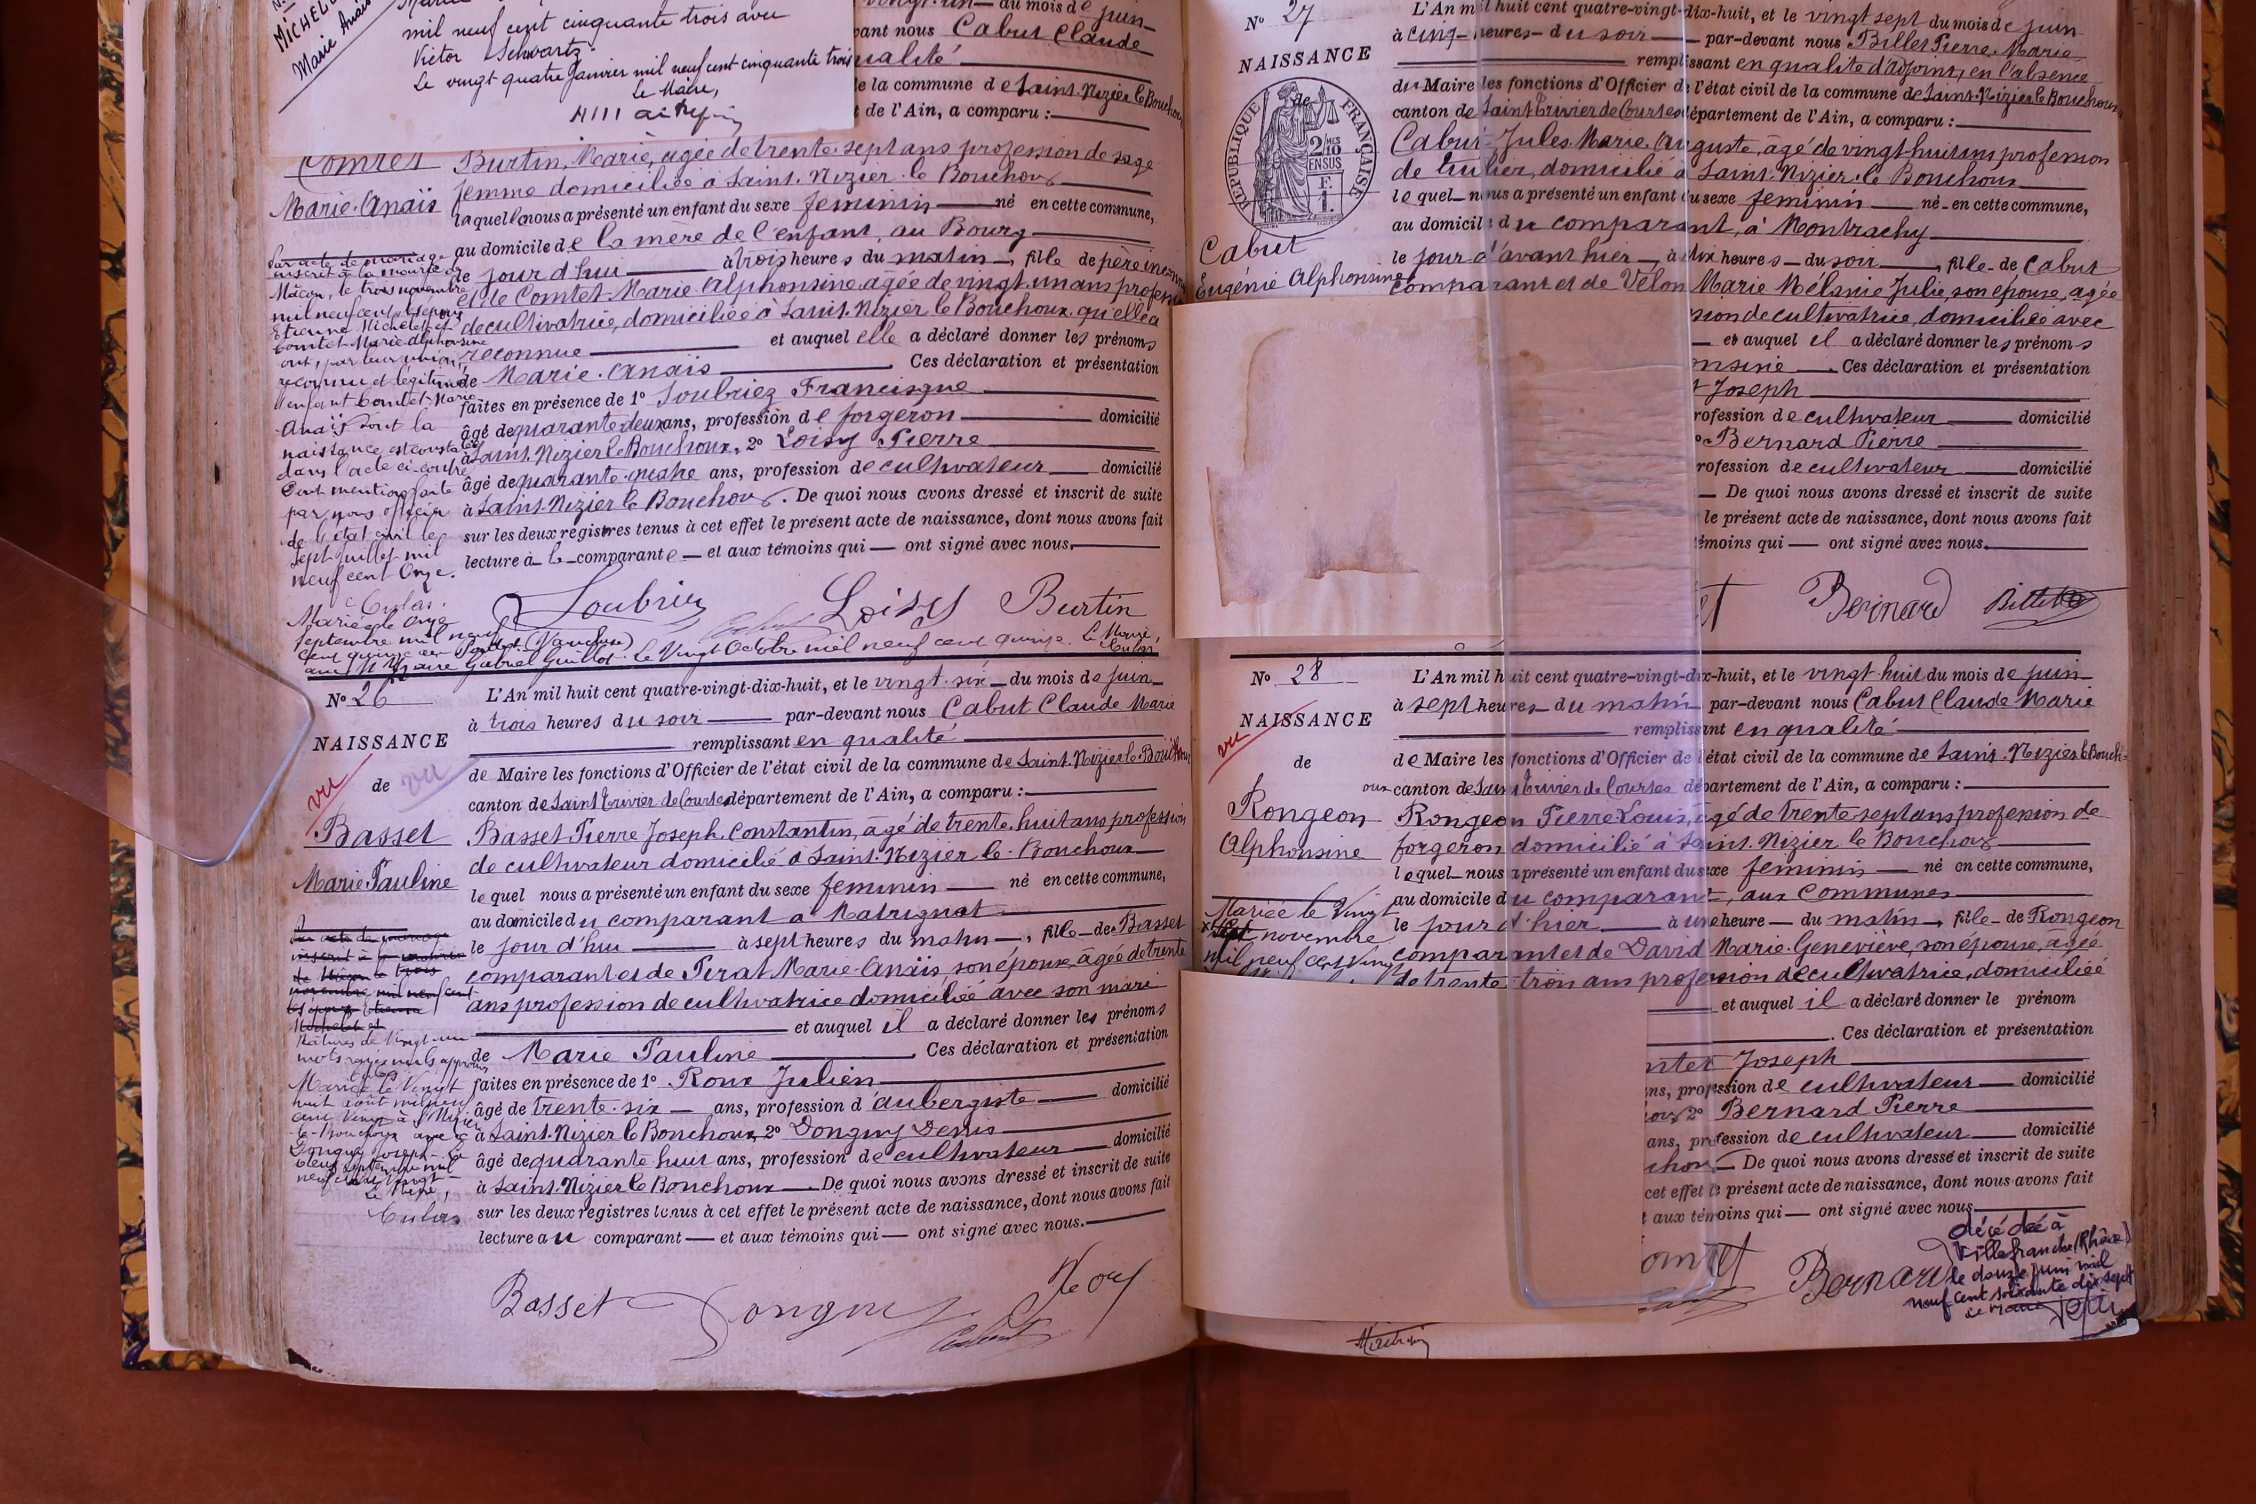 MICHEL
Marie Anaïs
mil neuf cent cinquante trois avec
Victor Schwartz
Le vingt quatre Janvier mil neuf cent cinquante trois
Le Maire,
vingt-un — au mois de juin
vant nous Cabut Claude
qualité
de la commune de Saint-Nizier le Bouchoux
t de l'Ain, a comparu :
Comtet
Marie-Anaïs
Burtin, Marie, agée de trente-sept ans profession de sage
femme domiciliée à Saint-Nizier-le Bouchoux
laquelle nous a présenté un enfant du sexe féminin — né en cette commune,
au domicile de la mère de l'enfant, au Bourg
le jour d'hui — à trois heures du matin —, fille de père inconnu
et de Comtet Marie Alphonsine agée de vingt-un ans profession
de cultivatrice, domiciliée à Saint-Nizier le Bouchoux qu'elle a
reconnue — et auquel elle a déclaré donner les prénoms
de Marie-Anaïs — Ces déclaration et présentation
faites en présence de 1º Soubriez Francisque
âgé de quarante-deux ans, profession de forgeron — domicilié
à Saint-Nizier le Bouchoux, 2º Loisy Pierre
âgé de quarante-quatre ans, profession de cultivateur — domicilié
à Saint-Nizier le Bouchoux. De quoi nous avons dressé et inscrit de suite
sur les deux registres tenus à cet effet le présent acte de naissance, dont nous avons fait
lecture à la comparante — et aux témoins qui — ont signé avec nous.
Par acte de mariage
inscrit à la mairie de
Mâcon, le trois novembre
mil neuf cent les époux
Etienne Michelet et
Comtet Marie Alphonsine
ont, par leur union,
reconnu et légitimé
l'enfant Comtet Marie
Anaïs dont la
naissance est constatée
dans l'acte ci-contre
Dont mention faite
par nous officier
de l'état civil le
sept juillet mil
neuf cent onze.
Culas
Mariée le onze
septembre mil neuf
cent quinze à (Vaucluse)
avec Gabriel Guillot. Le Vingt Octobre mil neuf cent quinze. Le Maire,
Culas
Loisy Burtin
Nº 26
NAISSANCE
de
vu
vu
Basset
Marie Pauline
L'An mil huit cent quatre-vingt-dix-huit, et le vingt-six — du mois de juin
à trois heures du soir — par-devant nous Cabut Claude Marie
remplissant en qualité
de Maire les fonctions d'Officier de l'état civil de la commune de Saint-Nizier le Bouchoux
canton de Saint Trivier de Courtes département de l'Ain, a comparu :
Basset Pierre Joseph Constantin, âgé de trente-huit ans profession
de cultivateur domicilié à Saint-Nizier le Bouchoux
le quel nous a présenté un enfant du sexe féminin — né en cette commune,
au domicile du comparant à Matrignat
le jour d'hui — à sept heures du matin —, fille — de Basset
comparant et de Perat Marie-Anaïs son épouse, âgée de trente
ans profession de cultivatrice domiciliée avec son mari
et auquel il a déclaré donner les prénoms
de Marie Pauline — Ces déclaration et présentation
faites en présence de 1º Roux Julien
âgé de trente-six — ans, profession d'aubergiste — domicilié
à Saint-Nizier le Bouchoux 2º Donguy Denis
âgé de quarante huit ans, profession de cultivateur — domicilié
à Saint-Nizier le Bouchoux — De quoi nous avons dressé et inscrit de suite
sur les deux registres tenus à cet effet le présent acte de naissance, dont nous avons fait
lecture au comparant — et aux témoins qui — ont signé avec nous.
Par acte de mariage
inscrit à la mairie
de Mâcon le trois
novembre mil neuf cent
les époux Etienne
Michelet et
Ratures de vingt-un
mots rayés nuls approuvés
Culas
Mariée le Vingt
huit août mil neuf
cent Vingt à St Nizier
le-Bouchoux avec
Donguy Joseph. Le
septembre mil
neuf cent vingt
Le Maire,
Culas
Basset Donguy Roux
Nº 27
NAISSANCE
de
RÉPUBLIQUE FRANÇAISE
Cabut
Eugénie Alphonsine
L'An mil huit cent quatre-vingt-dix-huit, et le vingt sept du mois de juin
à cinq heures — du soir — par-devant nous Billet Pierre Marie
remplissant en qualité d'adjoint, en l'absence
du Maire les fonctions d'Officier de l'état civil de la commune de Saint-Nizier le Bouchoux
canton de Saint Trivier de Courtes département de l'Ain, a comparu :
Cabut Jules Marie Auguste, âgé de vingt-huit ans profession
de tuilier, domicilié à Saint-Nizier-le Bouchoux
le quel — nous a présenté un enfant du sexe féminin — né — en cette commune,
au domicile du comparant, à Montrachy
le jour d'avant hier —, à dix heures — du soir —, fille — de Cabut
comparant et de Velon Marie Mélanie Julie, son épouse, agée
sion de cultivatrice, domiciliée avec
— et auquel il a déclaré donner les prénoms
onsine — Ces déclaration et présentation
t Joseph
rofession de cultivateur — domicilié
º Bernard Pierre
rofession de cultivateur — domicilié
— De quoi nous avons dressé et inscrit de suite
le présent acte de naissance, dont nous avons fait
témoins qui — ont signé avec nous.
et Bernard Billet
Nº 28
NAISSANCE
vu
de
Rongeon
Alphonsine
L'An mil huit cent quatre-vingt-dix-huit, et le vingt-huit du mois de juin
à sept heures — du matin par-devant nous Cabut Claude Marie
remplissant en qualité
de Maire les fonctions d'Officier de l'état civil de la commune de Saint-Nizier le Bouch-
oux canton de Saint Trivier de Courtes département de l'Ain, a comparu :
Rongeon Pierre Louis, âgé de trente-sept ans profession de
forgeron domicilié à Saint-Nizier le Bouchoux
lequel — nous a présenté un enfant du sexe féminin — né en cette commune,
au domicile du comparant, aux Communes
le jour d'hier — à une heure — du matin —, fille — de Rongeon
comparant et de David Marie-Geneviève, son épouse, âgée
de trente-trois ans profession de cultivatrice, domiciliée
et auquel il a déclaré donner le prénom
Ces déclaration et présentation
mtet Joseph
ans, profession de cultivateur — domicilié
oux 2º Bernard Pierre
ans, profession de cultivateur — domicilié
choux — De quoi nous avons dressé et inscrit de suite
cet effet le présent acte de naissance, dont nous avons fait
t aux témoins qui — ont signé avec nous
Mariée le Vingt
sept novembre
mil neuf cent Vingt
omtet Bernard
décédée à
Villefranche (Rhône)
le douze juin mil
neuf cent soixante dix sept
Le Maire